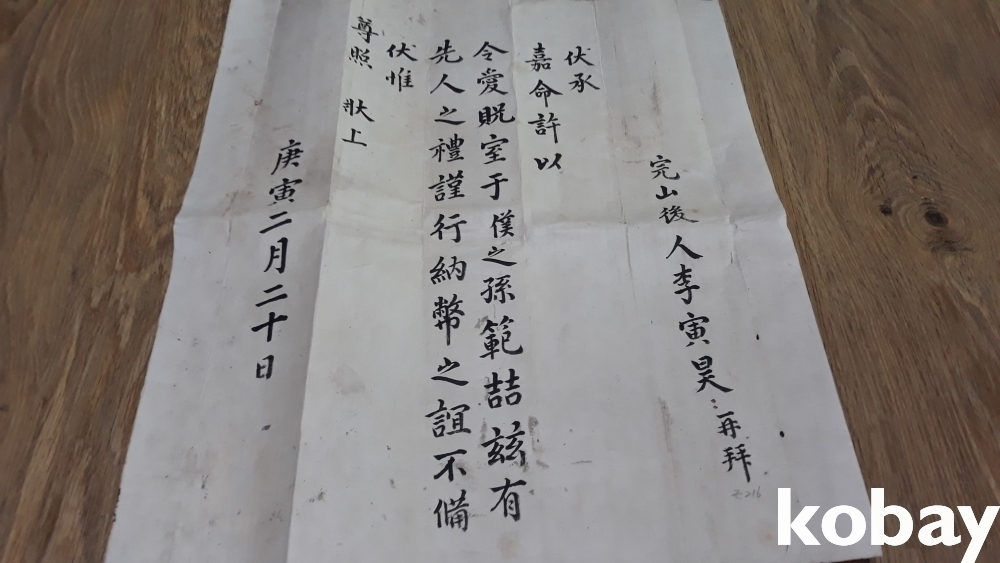 完山後人李寅昊 再拜
伏承
嘉命許以
令愛貺室于僕之孫範喆玆有
先人之禮謹行納幣之誼不備
伏惟
尊照 狀上
庚寅二月二十日
kobay